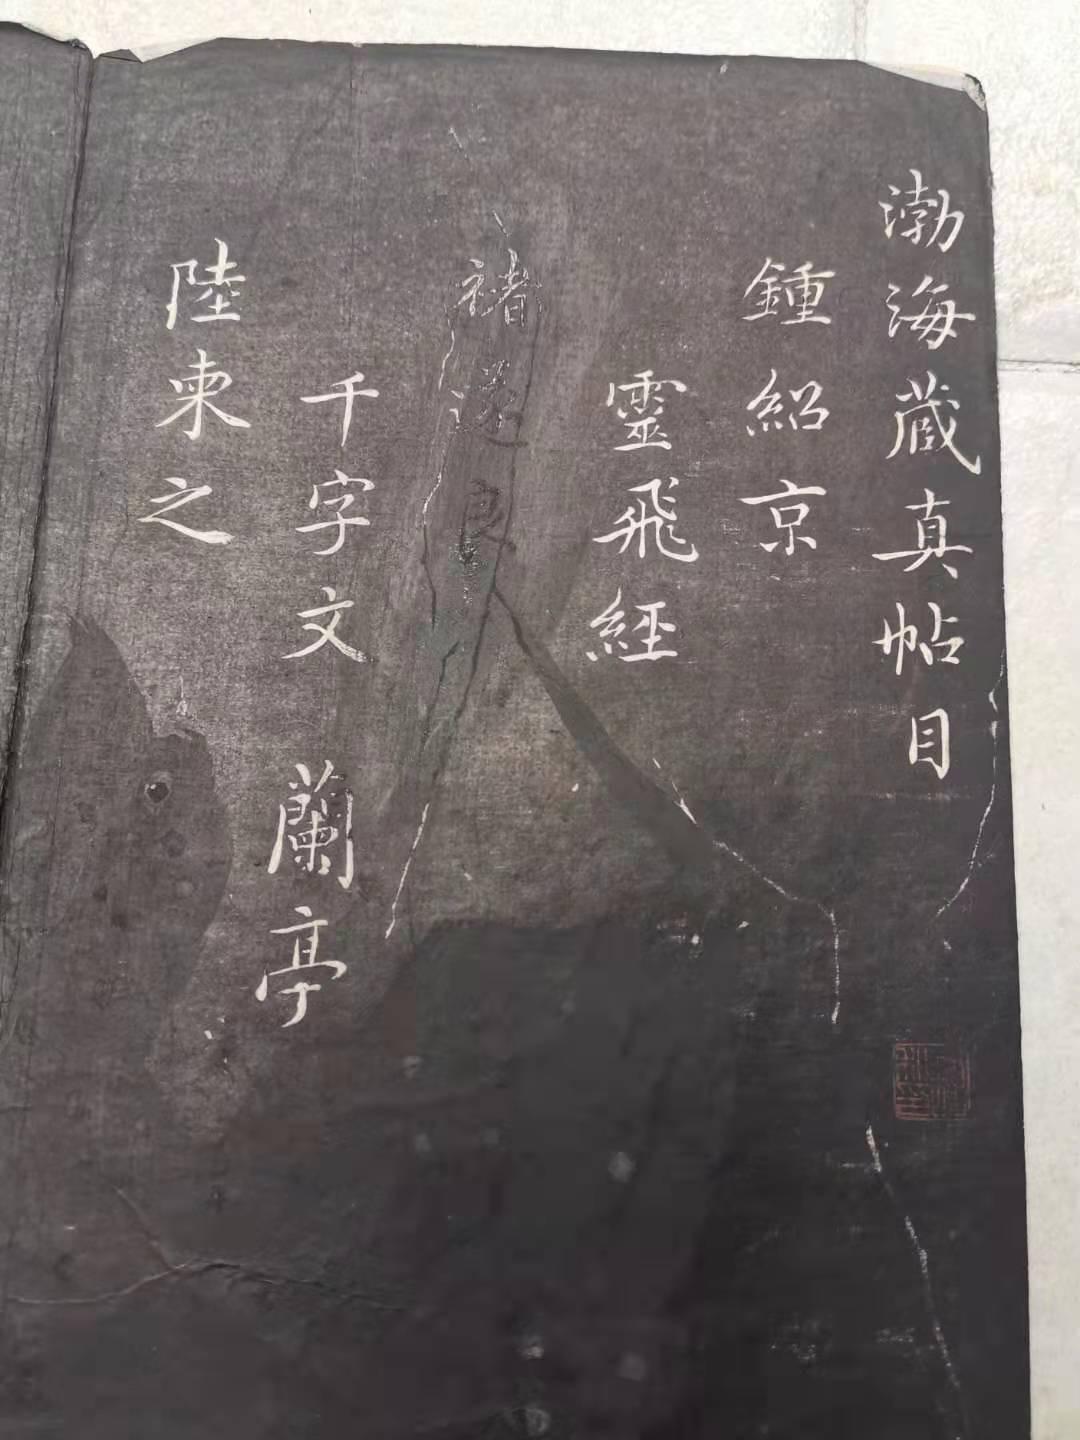 渤海藏真帖目
鍾紹京
靈飛經
褚遂良
千字文 蘭亭
陸柬之